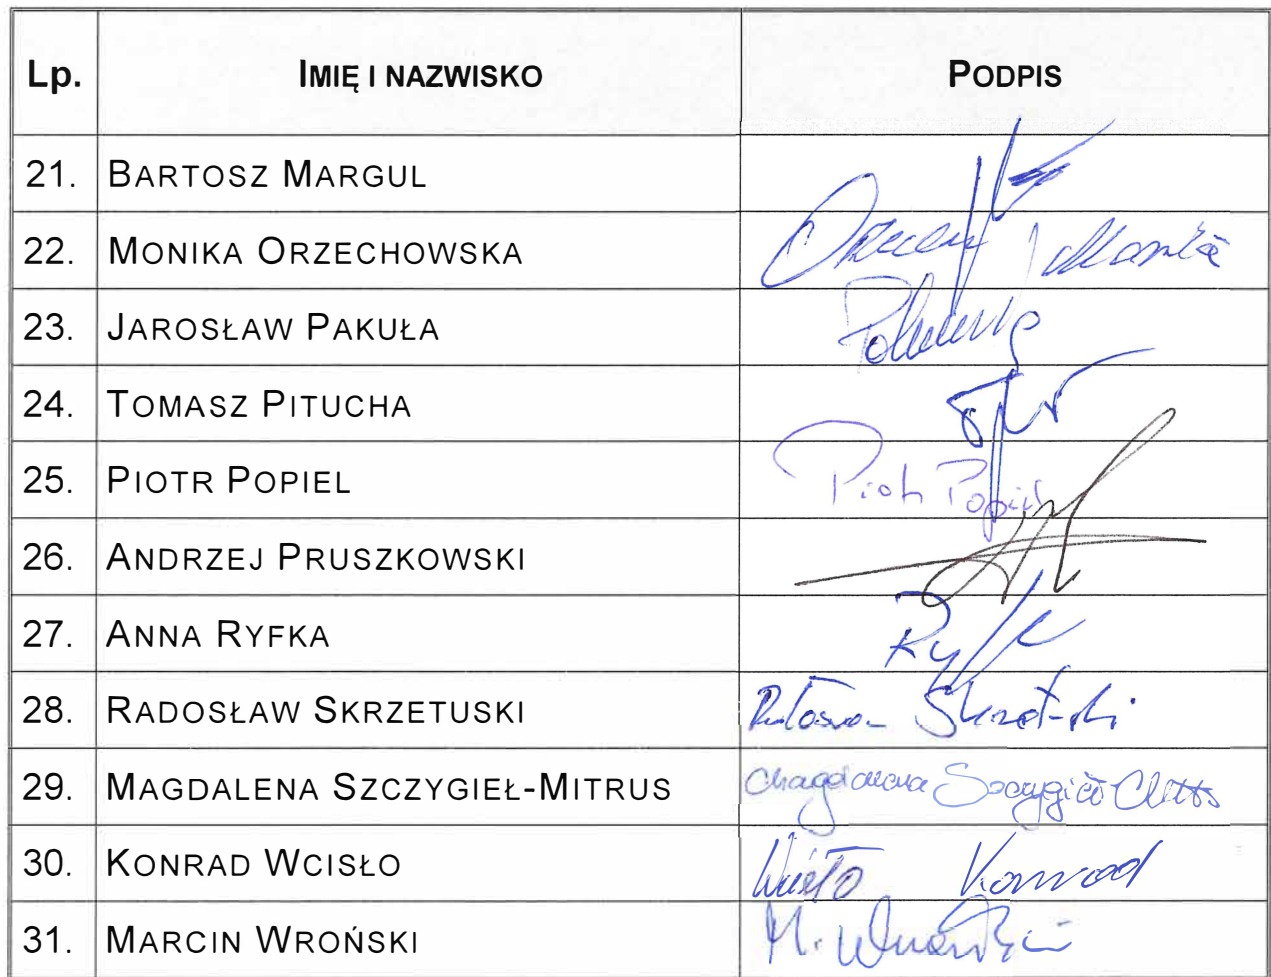 Lp. IMIĘ I NAZWISKO PODPIS
21. BARTOSZ MARGUL
22. MONIKA ORZECHOWSKA Monika
23. JAROSŁAW PAKUŁA
24. TOMASZ PITUCHA
25. PIOTR POPIEL Piotr Popiel
26. ANDRZEJ PRUSZKOWSKI
27. ANNA RYFKA
28. RADOSŁAW SKRZETUSKI
29. MAGDALENA SZCZYGIEŁ-MITRUS Magdalena Szczygieł
30. KONRAD WCISŁO Wcisło Konrad
31. MARCIN WROŃSKI M. Wroński